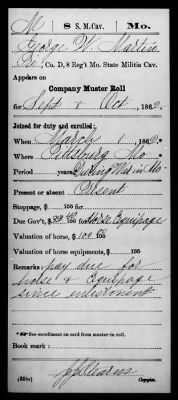 M 8 S.M.Cav. Mo.
George W. Martin
Co. D, 8 Reg't Mo. State Militia Cav.
Appears on
Company Muster Roll
for Sept & Oct, 1862.
Joined for duty and enrolled:
When March 1, 1862.
Where Mo
Period During War in Mo years.
Present or absent Present
Stoppage, $ 100 for
Due Gov't, $ 100 for Horse Equipage
Valuation of horse, $ 100 100
Valuation of horse equipments, $ 100
Remarks: pay due for
horse & Equipage
since enlistment
* See enrollment on card from muster-in roll.
Book mark:
Copyist.